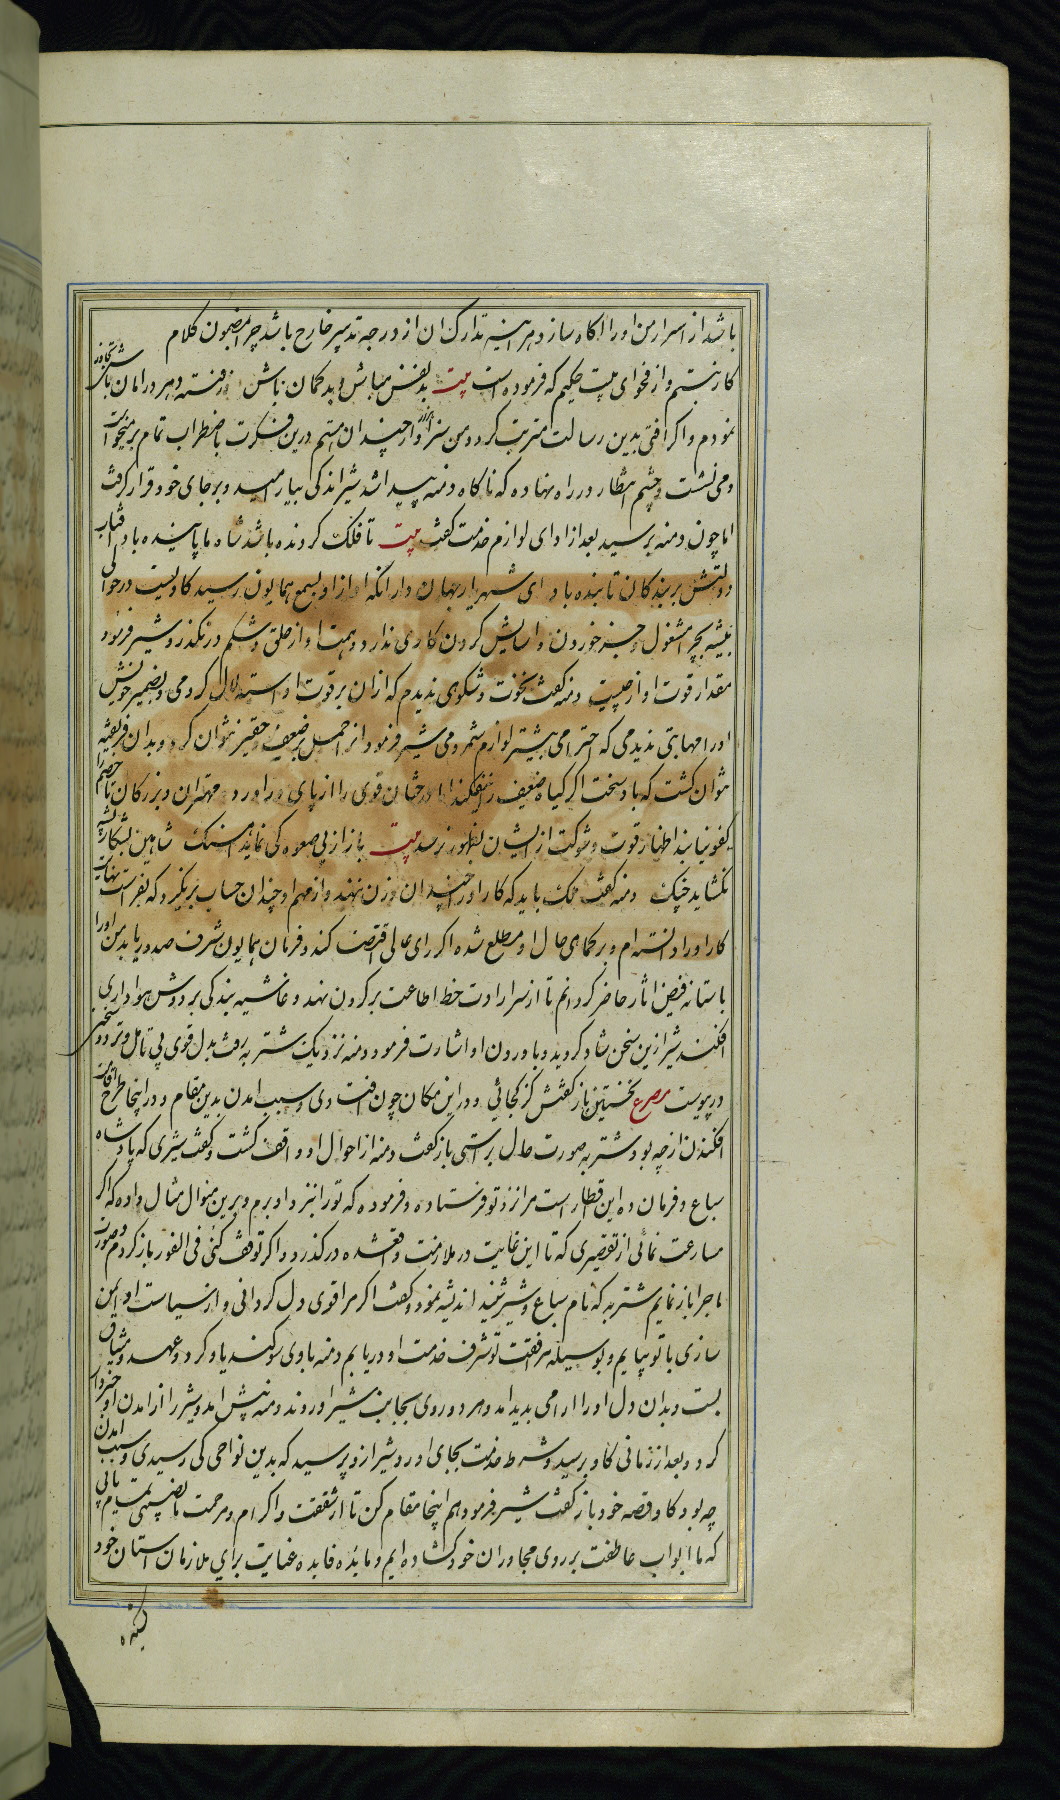 باشد از اسرار من او را آگاه سازد هرآینه تدارک آن از درجه تدبیر خارج باشد چرا مضمون کلام
کار نبستم و از فحوای بیت حکیم که فرموده است بیت بدنفس مباش و بدگمان باش وز فتنه دهر در امان باش تجاوز
نمودم و اگر آفتی بدین رسالت مترتب گردد من سزاوار چندانم درین فکرت باضطراب تمام برمیخواست
و می نشست و چشم انتظار در راه نهاده که ناگاه دمنه پیدا شد شیر اندکی بیارمید و بر جای خود قرار گرفت
اما چون دمنه برسید بعد از ادای لوازم خدمت گفت بیت تا فلک گردنده باشد شاه ما پاینده باد آفتاب
دولتش بر بندگان تابنده باد ای شهریار جهان دار آنکه آواز او بسمع همایون رسید گاویست در حوالی
بیشه بچرا مشغول و جز خوردن و آسایش کردن کاری ندارد و همت او از حلق و شکم درنگذرد شیر فرمود
مقدار قوت او از چیست دمنه گفت نخوت و شکوهی ندیدم که ازان بر قوت او استدلال کردمی و بضمیر خویش
او را مهابتی ندیدمی که احترامی بیشتر لوازم شمردمی شیر فرمود آنرا حمل بر ضعیف حقیر نتوان کرد و بدان فریفته
نتوان گشت که باد سخت اگر گیاه ضعیف را نیفکند اما درختان قوی را از پای درآورد مهتران و بزرگان تا خصم را
کفو نیابند اظهار قوت و شوکت از ایشان بظهور نرسد بیت باز از پی صعوه کی نماید آهنگ شاهین بشکار پشه
نگشاید چنگ دمنه گفت ملک باید که کار او را چندان وزن ننهد و از مهم او چندان حساب برنگیرد که بفراست نهایت
کار او را دانسته ام و بر کماهی حال او مطلع شده اگر رای عالی اقتضا کند و فرمان همایون شرف صدور یابد من او را
باستانه فیض آثار حاضر گردانم تا از سر ارادت خط اطاعت بر گردن نهد و غاشیه بندگی بر دوش هواداری
افکند شیر ازین سخن شاد گردید و باوردن او اشارت فرمود دمنه نزدیک شتربه رفت بدل قوی بی تامل و تردد سخن
درپیوست مصرع نخستین باز گفتش کز کجائی و در این مکان چون افتادی و سبب آمدن بدین مقام و در اینجا طرح اقامت
افکندن از چه بود شتربه صورت حال براستی باز گفت و دمنه از احوال او واقف گشت و گفت شیری که پادشاه
سباع و فرمان ده این اقطار است مرا نزد تو فرستاده و فرموده که ترا نزد او برم و برین منوال مثال داده که اگر
مسارعت نمائی از تقصیری که تا این غایت در ملازمت واقع شده درگذرد و اگر توقف کنی فی الفور بازگردم و صورت
ماجرا باز نمایم شتربه که نام سباع و شیر شنید اندیشه نمود و گفت اگر مرا قوی دل گردانی و از سیاست او ایمن
سازی با تو بیایم و بوسیله مرافقت تو شرف خدمت او دریابم دمنه با وی سوگند یاد کرد و عهد و میثاق
بست و بدان دل او را آرامی پدید آمد و هر دو روی بجانب شیر آوردند دمنه پیش آمد و شیر را از آمدن او خبردار
کرد و بعد از زمانی گاو برسید و شرط خدمت بجای آورد شیر ازو پرسید که بدین نواحی کی رسیدی و سبب آمدن
چه بود گاو قصه خود باز گفت شیر فرمود هم اینجا مقام کن تا از شفقت و اکرام و مرحمت ما نصیبی تمام یابی
که ما ابواب عاطفت بر روی مجاوران خود گشاده ایم و مایده فایده عنایت برای ملازمان آستان خود